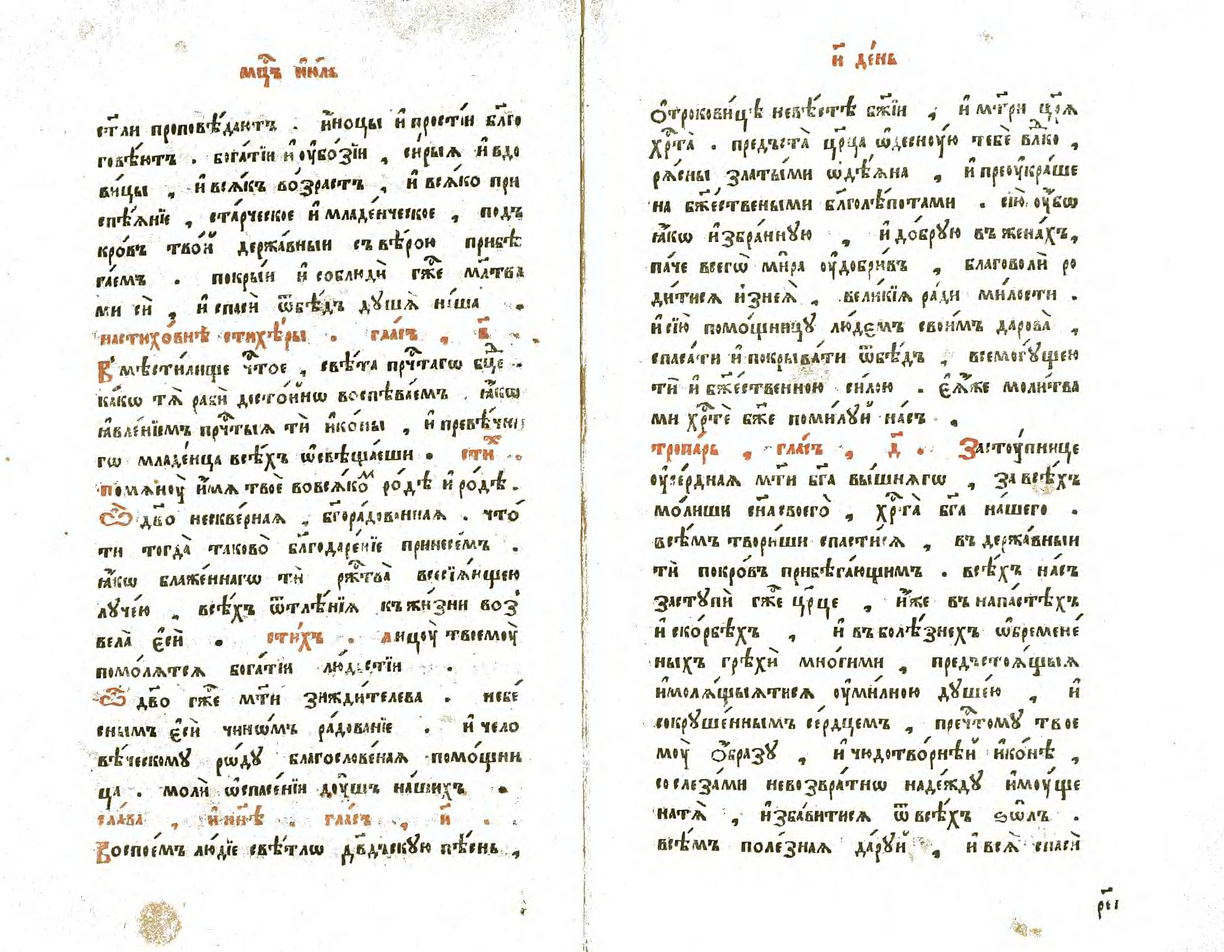 мц҃ъ і҆ю́лъ
ст҃ли проповѣ́даютъ . и҆́ноцы и҆ прості́и бл҃го
говѣ́ютъ . бога́тїи и҆ оу҆бо́зїи , си́рыѧ и҆ вдо
ви́цы , и҆ всѧ́къ во́зрастъ , и҆ всѧ́ко при
спѣѧ́нїе , ста́рческое и҆ младе́нческое , подъ
кро́въ тво́й держа́вныи съ вѣ́рою прибѣ
га́емъ . покры́и и҆ соблюди́ гж҃е мл҃тва
ми си́ , и҆ спаси́ ѿ бѣ́дъ дꙋ́шѧ на́ша .
на стихо́внѣ стихе́ры . гла́съ , в҃ .
Вмѣсти́лище чт҃ое , свѣ́та прчⷭ҇таго бц҃е .
ка́кѡ тѧ̀ раби̂ досто́йнѡ воспѣва́емъ . ꙗ҆́кѡ
ꙗ҆вле́нїемъ прчⷭ҇тыѧ тѝ и҆ко́ны , и҆ превѣ́чна
гѡ младе́нца всѣ́хъ ѡ҆свѣща́еши . сти́х .
помѧноу̀ и҆́мѧ твоѐ во всѧ́комъ ро́дѣ и҆ ро́дѣ .
Ѽ дв҃о нескве́рнаѧ , бг҃ора́дованнаѧ . что́
ти тогда̀ таково̀ бл҃годаре́нїе принесе́мъ .
ꙗ҆́кѡ блаже́ннагѡ тѝ ржⷭ҇тва̀ всесїѧ́ющею
лꙋче́ю , всѣ́хъ ѿ тлѣ́нїѧ къ жи́зни воз
вела̀ є҆сѝ . сти́хъ . лицоу̀ твоемоу̀
помо́лѧтсѧ бога́тїи лю́дстїи .
Ѽ дв҃о гж҃е мт҃и зижди́телева . небе́
снымъ є҆сѝ чинѡ́мъ ра́дованїе . и҆ чело
вѣ́ческомꙋ ро́дꙋ благослове́наѧ помо́щни
ца . молѝ ѡ҆ спасе́нїи дꙋ́шъ на́шихъ .
сла́ва , и҆ нн҃ѣ . гла́съ , и҃ .
Воспое́мъ лю́дїе свѣ́тлѡ дв҃дскꙋю пѣ́снь ,
и҃ де́нь
ѻ҆трокови́цѣ невѣ́стѣ бж҃їи , и҆ мт҃ри цр҃ѧ
хрⷭ҇та̀ . предъста̀ цр҃ца ѡ҆деснꙋ́ю тебѐ вл҃ко ,
рѧ́сны златы́ми ѡ҆дѣ́ѧна , и҆ преоу҆кра́ше
на бж҃е́ствеными бл҃голѣ́потами . сїю̀ оу҆́бѡ
ꙗ҆́кѡ и҆збра́ннꙋю , и҆ до́брꙋю въ жена́хъ ,
па́че всегѡ̀ ми́ра оу҆до́бривъ , благоволѝ ро
ди́тисѧ и҆з неѧ̀ , вели́кїѧ ра́ди ми́лости .
и҆ сїю̀ помо́щницꙋ лю́демъ свои́мъ дарова̀ ,
спаса́ти и҆ покрыва́ти ѿ бѣ́дъ , всемогꙋ́щею
тѝ и҆ бж҃е́ственною си́лою . є҆ѧ́же моли́тва
ми хрⷭ҇тѐ бж҃е поми́лꙋй на́съ .
тропа́рь , гла́съ , д҃ . Застоу́пнице
оу҆се́рднаѧ мт҃и бг҃а вы́шнѧгѡ , за всѣ́хъ
мо́лиши сн҃а своего̀ , хрⷭ҇та̀ бг҃а на́шего .
всѣ́мъ твори́ши спасти́сѧ , въ держа́вныи
тѝ покро́въ прибѣга́ющимъ . всѣ́хъ на́съ
застꙋпѝ гж҃е цр҃це , и҆́же въ напа́стѣхъ
и҆ ско́рбѣхъ , и҆ въ болѣ́знехъ ѡ҆бремене́
ныхъ грѣхѝ мно́гими , предъстоѧ́щыѧ
и҆ молѧ́щыѧтисѧ оу҆ми́лною дꙋше́ю , и҆
сокрꙋше́ннымъ се́рдцемъ , пречⷭ҇томꙋ твое
моꙋ̀ ѻ҆́бразꙋ , и҆ чюдотво́рнѣй и҆ко́нѣ ,
со слеза́ми невозвра́тнѡ наде́ждꙋ и҆мꙋ́ще
на тѧ̀ , и҆зба́витисѧ ѿ всѣ́хъ ѕѡ́лъ .
всѣ́мъ поле́знаѧ да́рꙋй , и҆ всѧ̀ спасѝ
рє҃і